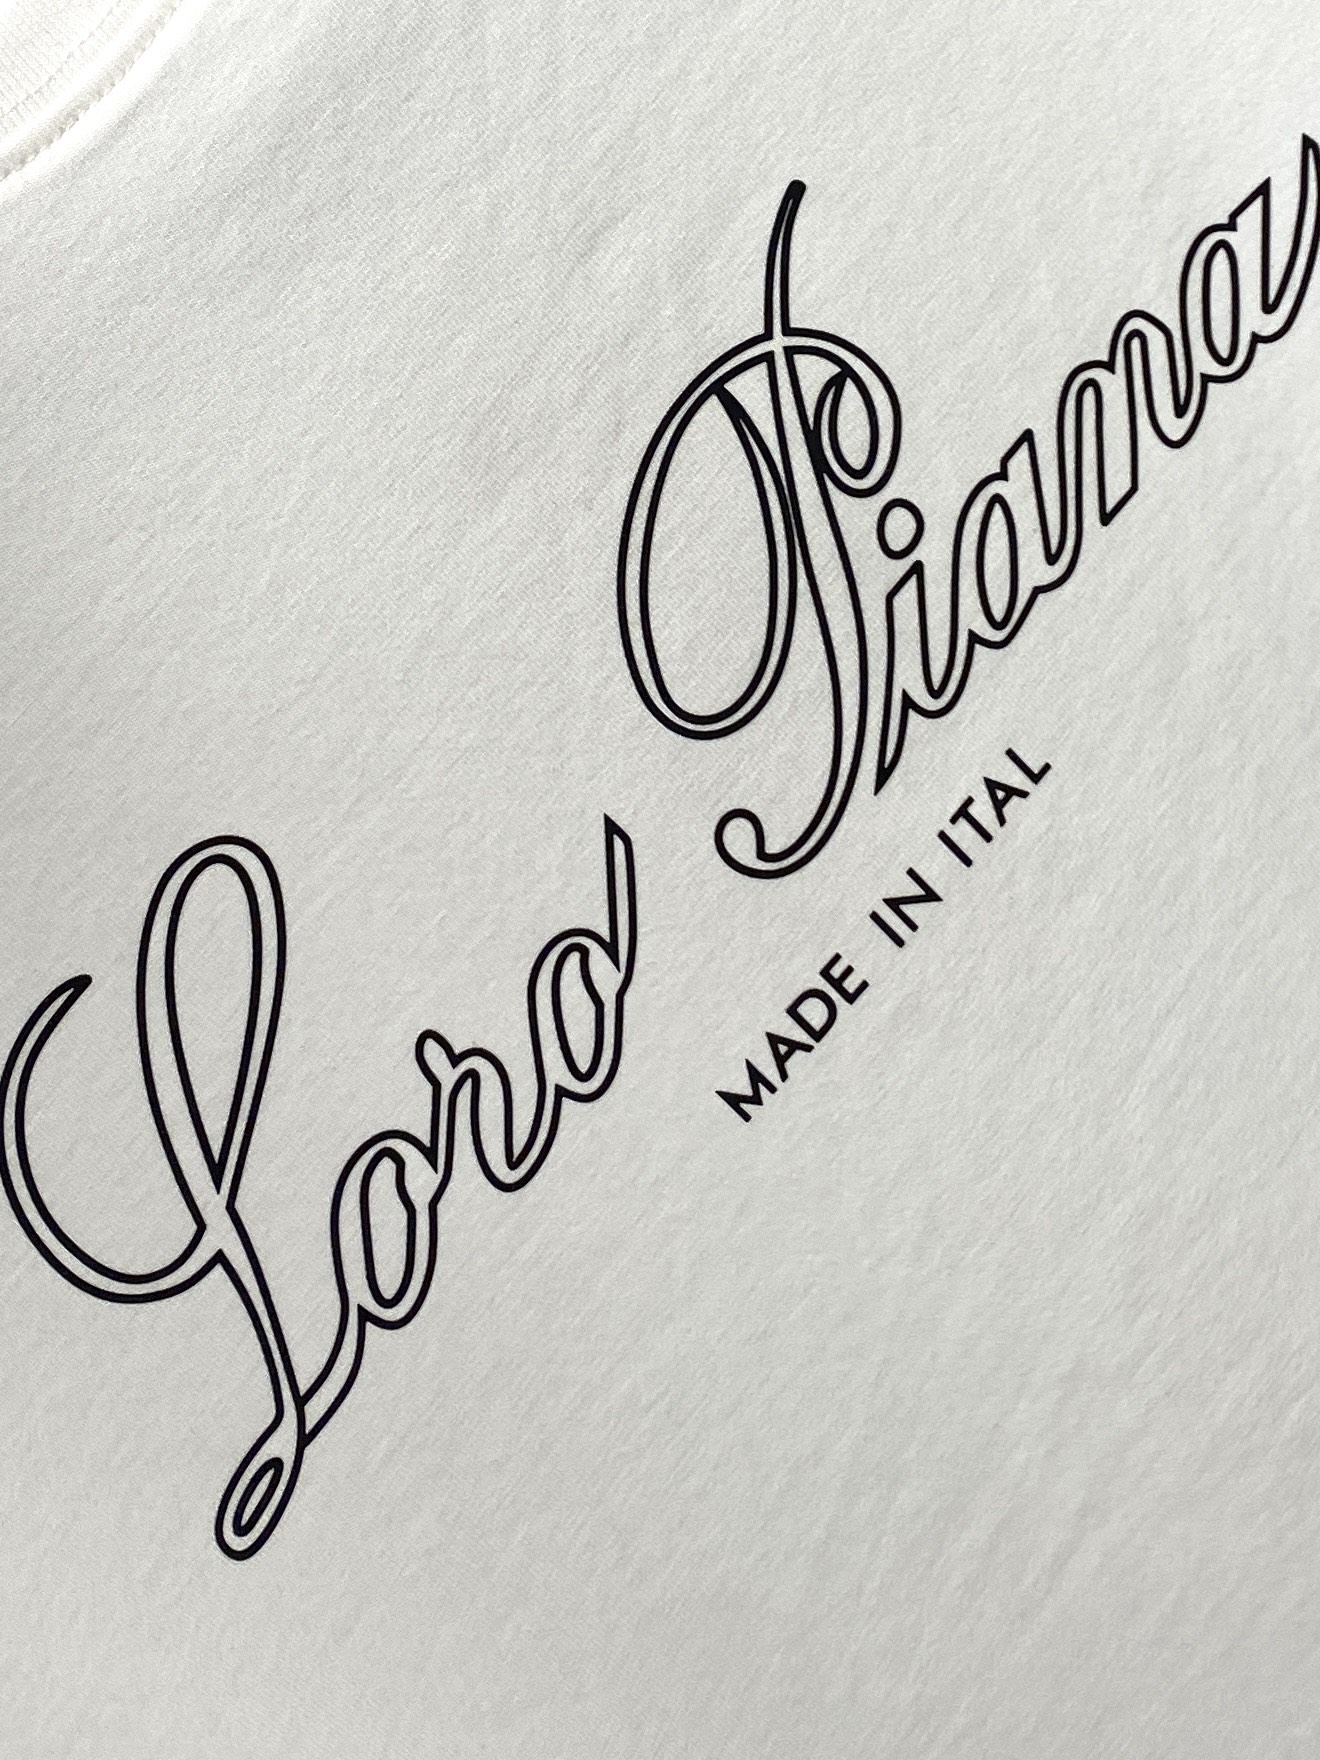 Loro Piana
MADE IN ITAL